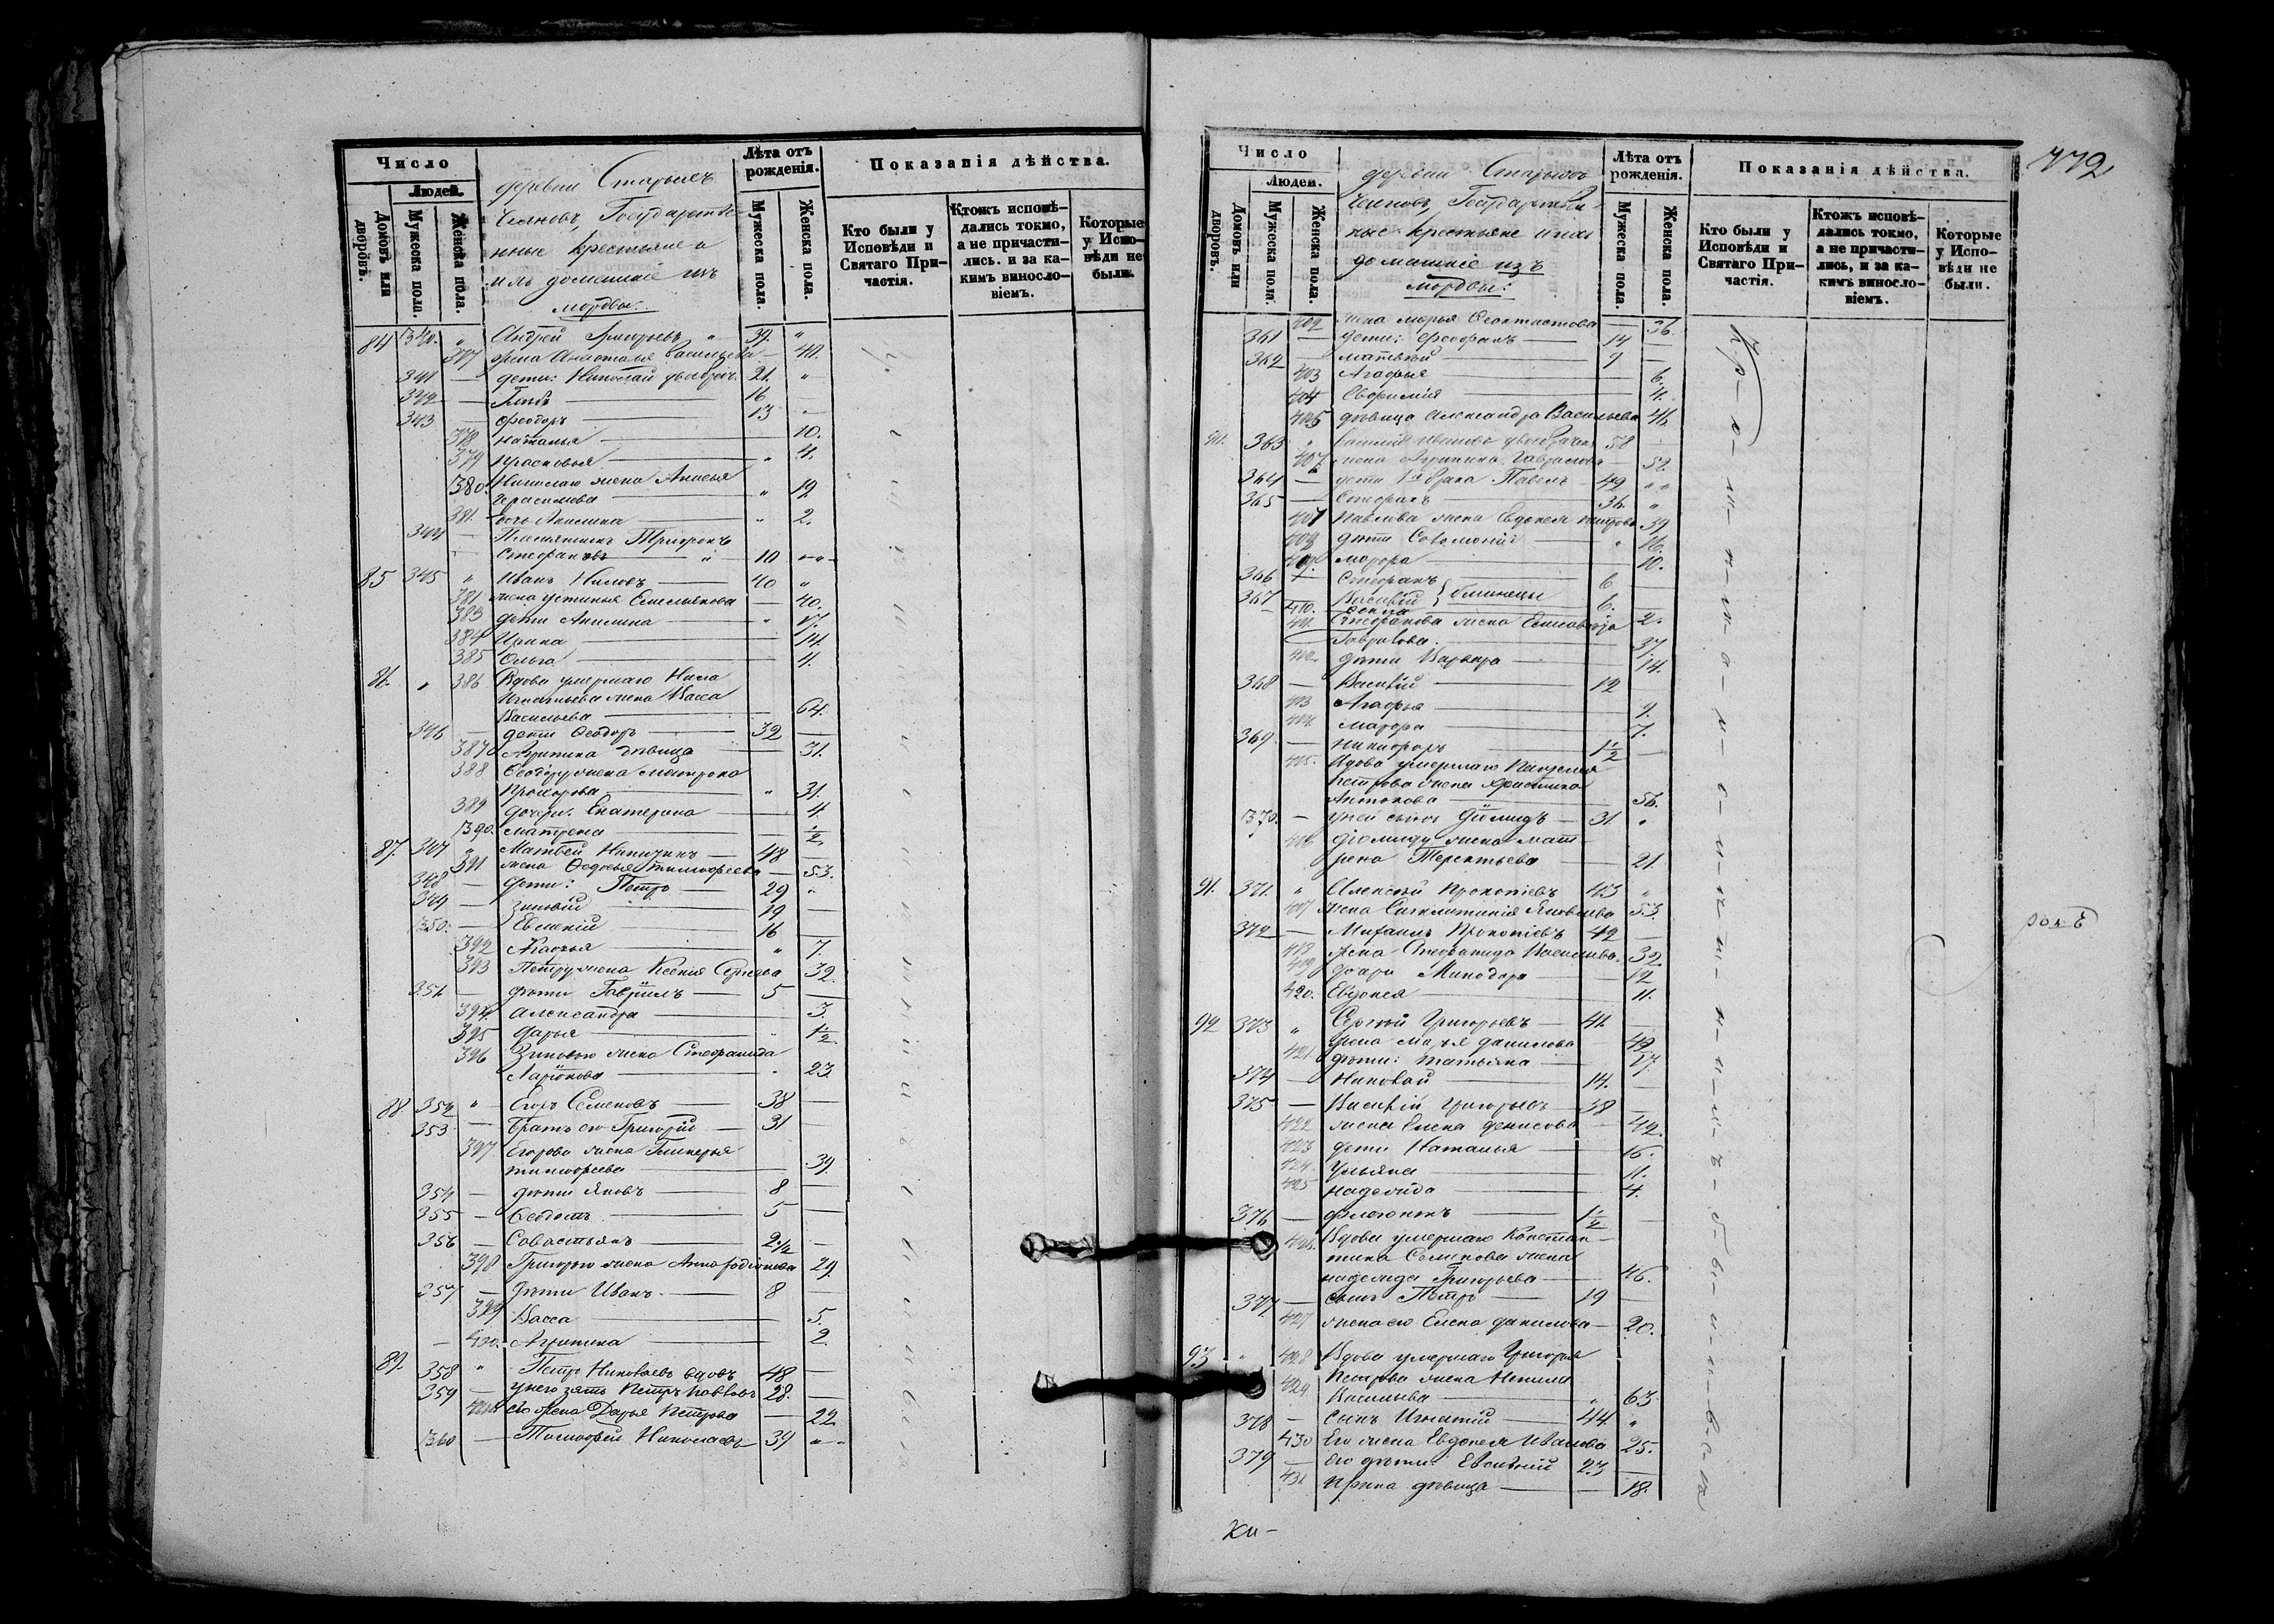 Число
Людей.
Домовъ или дворовъ.
Мужеска пола.
Женска пола.
деревни Старыхъ
Чесновъ, Государстве-
нные крестьяне и
ихъ домашніе изъ
мордвы:
Лѣта отъ рожденія.
Мужеска пола.
Женска пола.
Показанія дѣйства.
Кто были у Исповѣди и Святаго Причастія.
Ктожъ исповѣдались токмо, а не причастились. и за какимъ винословіемъ.
Которые у Исповѣди не были.
84 340. " Андрей Григорьевъ " 39. "
377 жена Анастасья Васильева — 40.
341 — дети: Николай 21. "
342 — Глебъ — 16
343 — Феодоръ — 13 "
378 Наталья — 10.
379 Прасковья — " 4.
380. Николаю жена Анисья
Герасимова — " 19
381. дочь Акилина — " 2.
344 — Племянникъ Трифонъ
Стефановъ — " 10
85 345 " Иванъ Ниловъ — 40 "
381 жена Устинья Емельянова — 40.
383 дети Акилина — " 17.
384 Ирина — 14.
385 Ольга — 4.
86. " 386 Вдова умершаго Нила
Игнатьева жена Васса
Васильева — 64.
346 — дети Феодоръ — 32 —
387 Агрипина девица — 31.
388 Феодору жена Матрона
Прохорова — " 31.
389 дочери: Екатерина — 4.
390. Матрена — ½
87. 347 " Матвей Никитинъ — 48 —
391 жена Федосья Тимофеева — 53.
348 — дети: Петръ — 29 "
349 — Зиновій — 19 —
350. — Евсигній — 16 —
392 Агафья — " 7.
393 Петру жена Ксенія Сергеева 32.
351 — дети Гавріилъ — 5 —
394 Александра — 3.
395 Дарья — 1½
396 Зиновію жена Стефанида
Ларіонова — " 23.
88 352 " Егоръ Семеновъ — 38 —
353 — Братъ его Григорій — 31 —
397 Егорова жена Гликерья
Тимофеева — 39.
354 — дѣти Яковъ — 8 —
355 — Феодотъ — 5 —
356 — Савастьянъ — 2½ —
398 Григорію жена Анна Родіонова 29.
357 — дѣти Иванъ — 8 —
399 Васса — 5.
400. Агрипина — 2.
89. 358 " Петръ Николаевъ вдовъ 48 —
359 — у него зять Петръ Павловъ 28. —
его жена Дарья Петрова — 22
360 — Тимофей Николаевъ 39 "
772
Число
Людей.
Домовъ или дворовъ.
Мужеска пола.
Женска пола.
деревни Старыхъ
Чесновъ, Государствен-
ные крестьяне и ихъ
домашніе изъ
мордвы:
Лѣта отъ рожденія.
Мужеска пола.
Женска пола.
Показанія дѣйства.
Кто были у Исповѣди и Святаго Причастія.
Ктожъ исповѣдались токмо, а не причастились, и за какимъ винословіемъ.
Которые у Исповѣди не были.
402 жена Марья Феоктистова — 36.
361 — дети: Феофанъ — 14 —
362 — Матвѣй — 9 —
403 Агафья — 6.
404 Евфимія — 4.
405 девица Александра Васильева 46
90. 363 " Василій Ивановъ 58 —
407 жена Агрипина Гаврилова — 52.
364 — дети 1го брака Павелъ — 49 "
365 — Стефанъ — 36. "
407 Павлова жена Евдокея Петрова 39
408 дети Соломонія — " 16.
409 Мавра — 10.
366 — Стефанъ 6
367 — Василій } близнецы 6.
410. Фекла — 2.
411. Стефанова жена Елисавета
Гаврилова. — 37.
412. дѣти Варвара — 14.
368 — Василій — 12
413 Агафья — 9.
414 Мавра — 7.
369 — Никифоръ — 1½ —
415. Вдова умершаго
Петрова жена Христина
Антонова — 56.
370. — у ней сынъ Діомидъ — 31. "
416 Діомиду жена Мат-
рена Терентьева — 21.
91. 371. " Алексѣй Прокопіевъ 43 "
417 жена Сигклитикія Яковлева 53.
372 — Михаилъ Прокопіевъ 42 —
418 жена Стефанида Васильева. 32
419 дочери Минодора — 12
420. Евдокея — 11.
92 373 " Сергѣй Григорьевъ — 41. —
жена Марья Данилова — 42
421. дѣти: Татьяна — 17.
374 — Николай — 14. —
375 — Василій Григорьевъ — 38 —
422 жена Елена Денисова — 42.
423 дети Наталья — 16.
424. Ульяна — 11.
425 Надежда — 4.
376 — Филогонъ — 1½ —
426. Вдова умершаго Констан-
тина Семенова жена
Надежда Григорьева — 46.
377. — сынъ Петръ — 19 —
427 жена его Елена Данилова — 20.
93 " 428 Вдова умершаго Григорья
Петрова жена Ненила
429 Васильева — " 63
378 — сынъ Игнатій — 44. "
430 Его жена Евдокея Иванова 25.
379 — Его дѣти: Евсигній 23 —
431 Ирина дѣвица — 18.